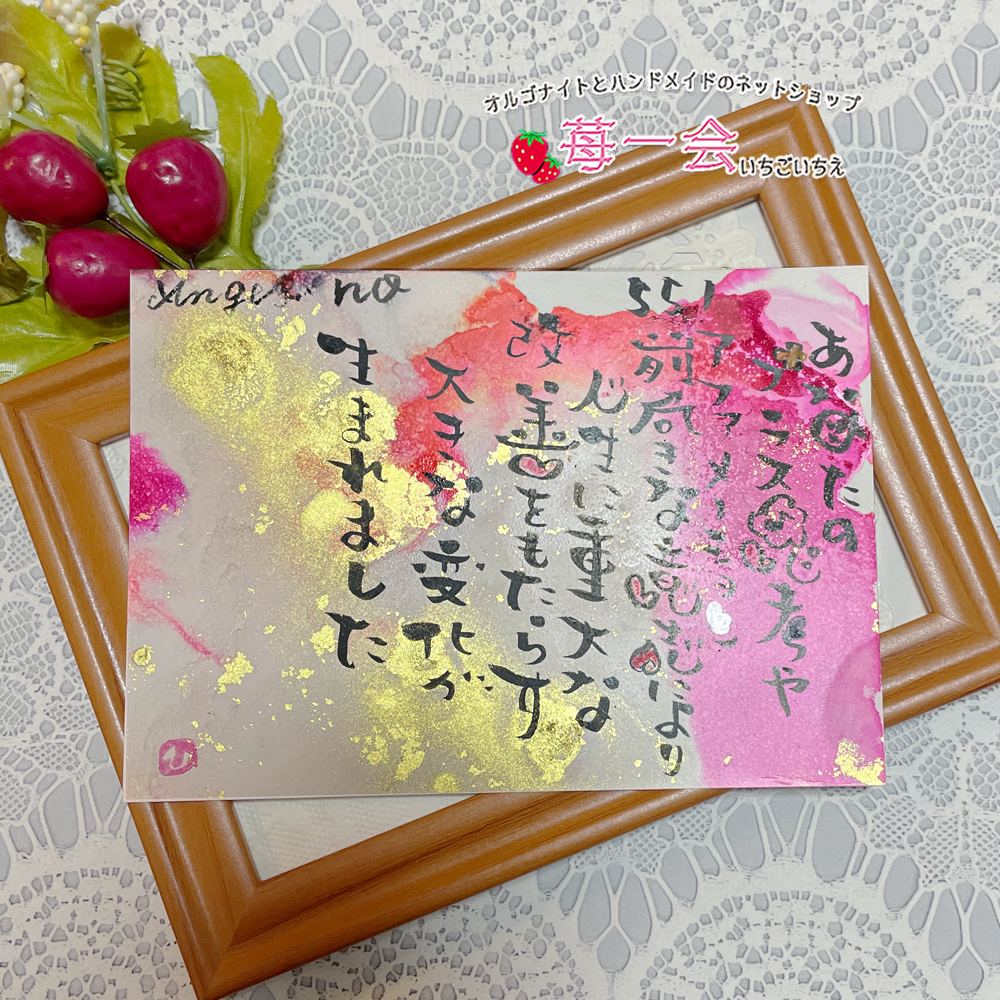 オルゴナイトとハンドメイドのネットショップ
苺一会
いちごいちえ
Angel no
551
あなたの
プラス思考や
アファメーション
前向きな により
人生に重大な
改善をもたらす
大きな変化が
生まれました
ひ